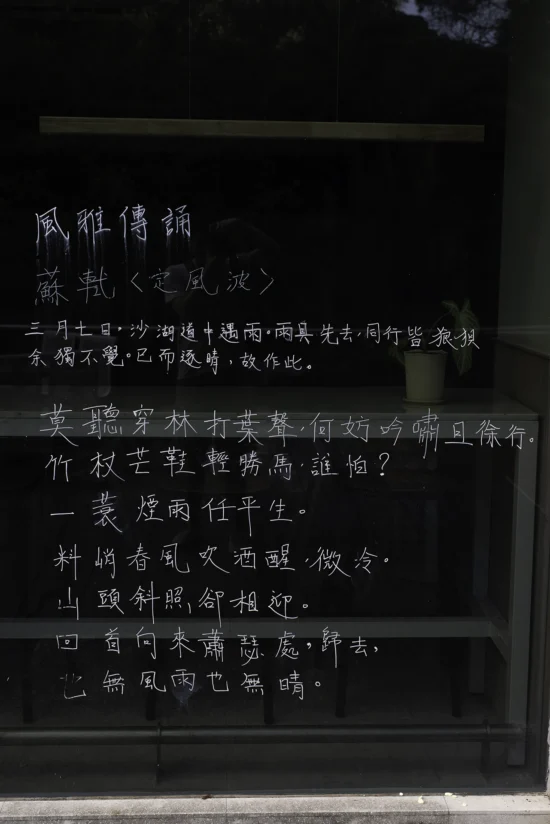 風雅傳誦
蘇軾〈定風波〉
三月七日。沙湖道中遇雨。雨具先去，同行皆狼狽
余獨不覺。已而逐晴，故作此。
莫聽穿林打葉聲，何妨吟嘯且徐行。
竹杖芒鞋輕勝馬，誰怕？
一蓑煙雨任平生。
料峭春風吹酒醒，微冷。
山頭斜照，卻相迎。
回首向來蕭瑟處，歸去，
也無風雨也無晴。